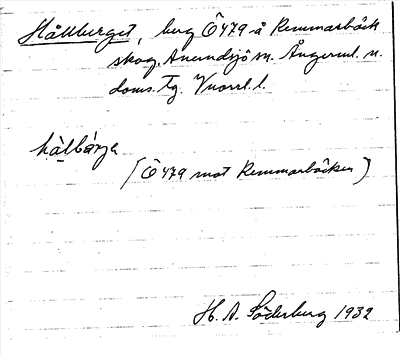 Hållberget, berg Ö 479 å Remmarbäck
skog, Anundsjö sn. Ångerml. n.
doms. Fg. Vuoml. l.
hàlbárja
(Ö 479 mot Remmarbäcken)
H. A. Söderberg 1932